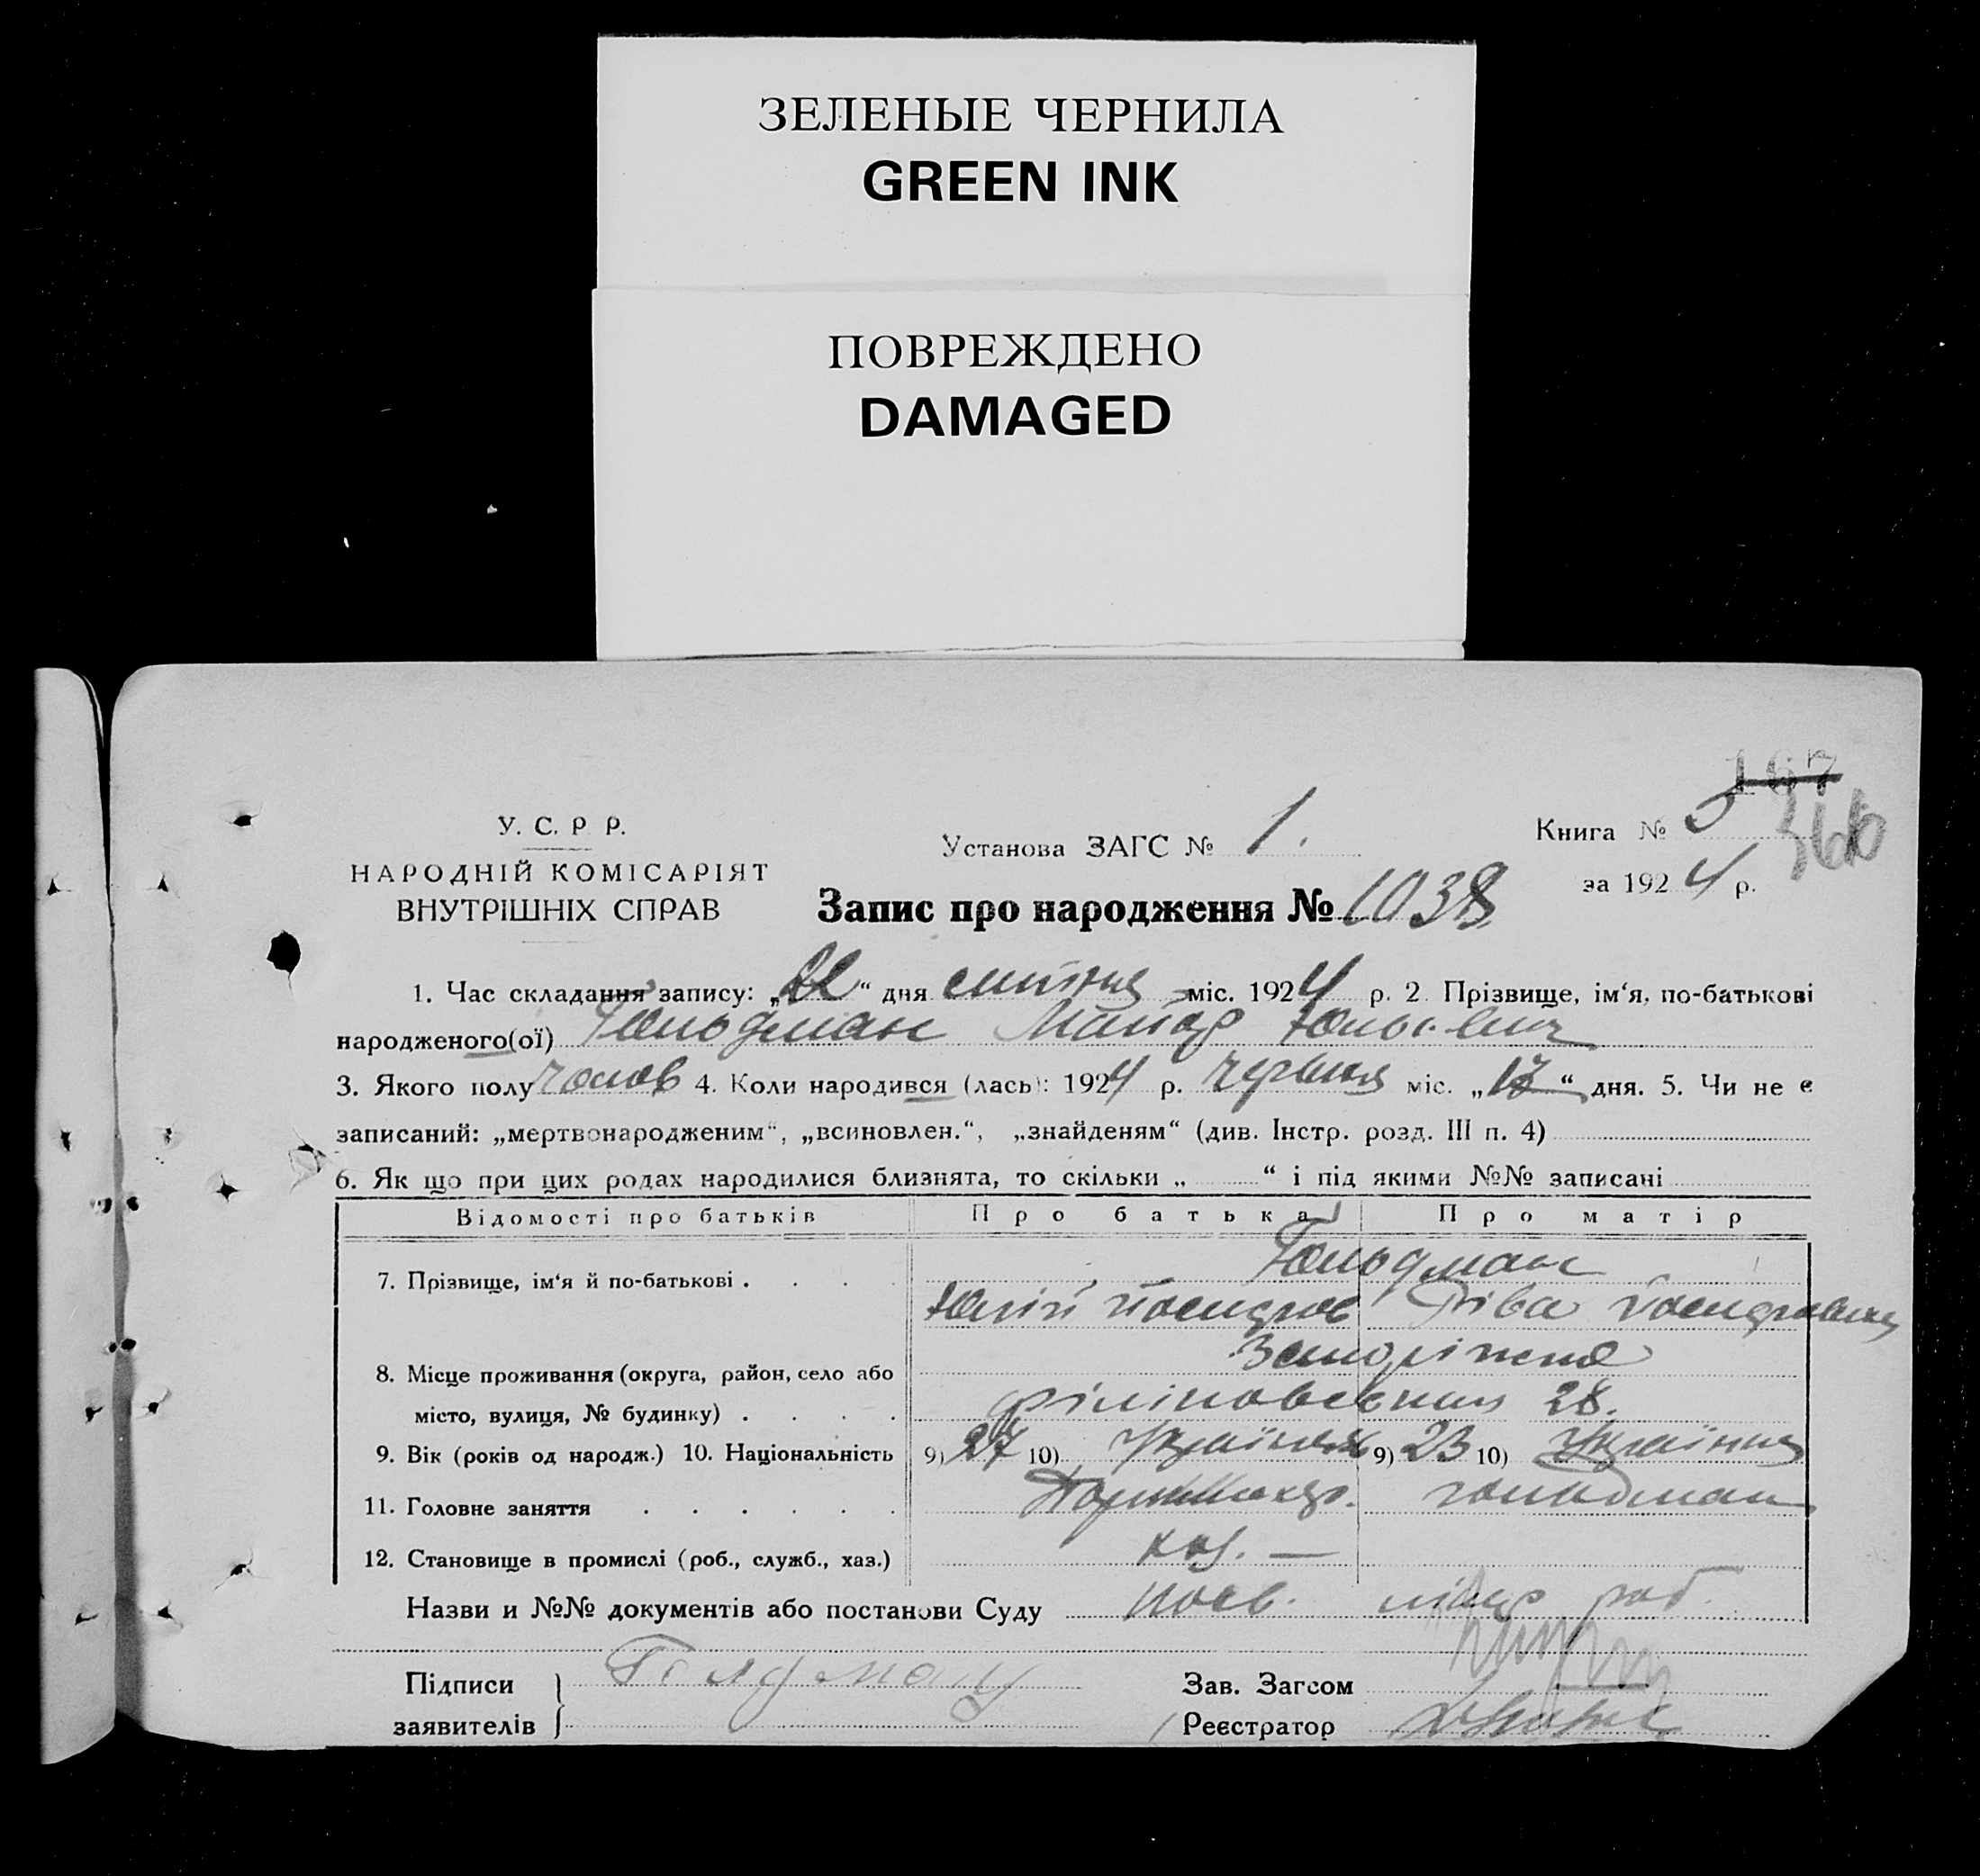 ЗЕЛЕНЫЕ ЧЕРНИЛА
GREEN INK
ПОВРЕЖДЕНО
DAMAGED
167
366
У. С. Р. Р.
НАРОДНІЙ КОМІСАРІЯТ
ВНУТРІШНІХ СПРАВ
Установа ЗАГС № 1.
Книга № 5
за 1924 р.
Запис про народження № 1038
1. Час складання запису: „22“ дня липня міс. 1924 р. 2. Прізвище, ім‘я, по-батькові
народженого(ої) Гольдман Юльєвич
3. Якого полу чолов 4. Коли народився (лась): 1924 р. червня міс. „17“ дня. 5. Чи не є
записаний: „мертвонародженим“, „всиновлен.“, „знайденям“ (див. Інстр. розд. III п. 4)
6. Як що при цих родах народилися близнята, то скільки „ “ і під якими №№ записані
Відомості про батьків Про батька Про матір
7. Прізвище, ім‘я й по-батькові Гольдман
Юлій Йосипов Ріва Йосиповна
8. Місце проживання (округа, район, село або Запоріжжя
місто, вулиця, № будинку) 28.
9. Вік (років од народж.) 10. Національність 9) 27 10) Українец 9) 23 10) Українка
11. Головне заняття
12. Становище в промислі (роб., служб., хаз.)
Назви и №№ документів або постанови Суду посв.
Підписи
заявителів
Зав. Загсом
Реєстратор